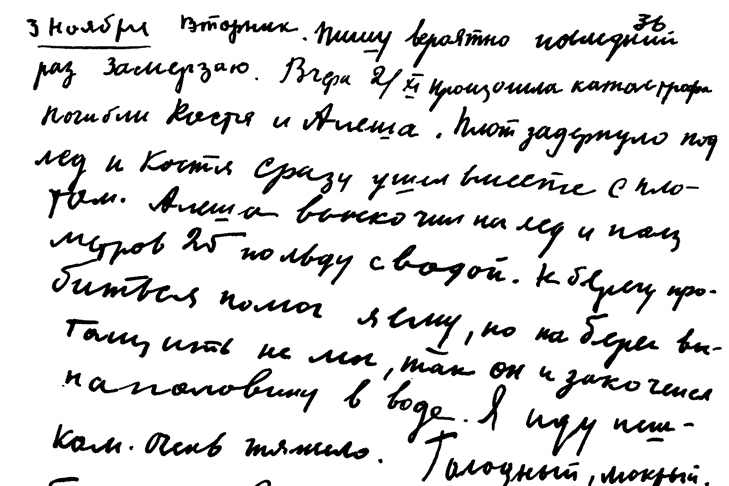 3 Ноября Вторник. Пишу вероятно последний 36
раз Замерзаю. Вчера 2/XI произошла катастрофа
Погибли Костя и Алеша. Плот задернуло под
лед и Костя сразу ушел вместе с пло-
том. Алеша выскочил на лед и полз
метров 25 по льду с водой. К берегу про-
биться помог я ему, но на берег вы-
тащить не мог, так он и закоченел
наполовину в воде. Я иду пеш-
ком. Очень тяжело. Голодный, мокрый,